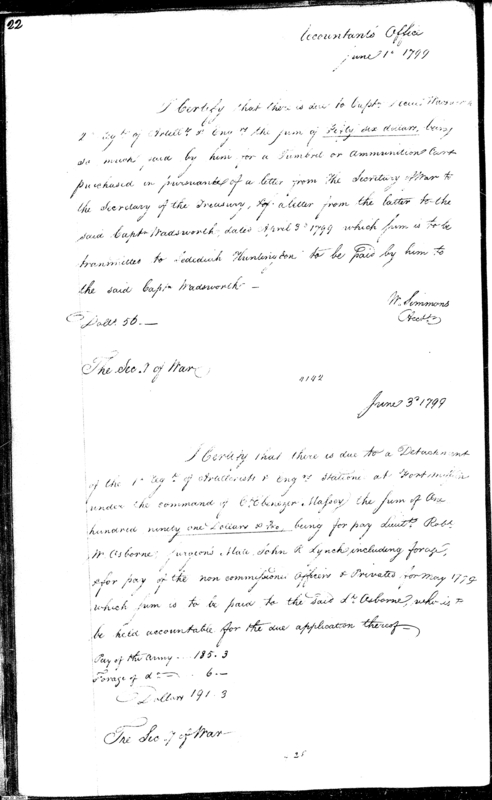 22
Accountants Office
June 1st 1799
I Certify that there is due to Captn
2d Regt of Artillts & Engrs the sum of Fifty six dollars, being
so much paid by him for a Tumbril or Ammunition Cart
purchased in pursuance of a letter from the Secretary of War to
the Secretary of the Treasury, & of a letter from the latter to the
said Captn Wadsworth, dated April 3d 1799 which sum is to be
tranmitted to Jedediah Huntington to be paid by him to
the said Captn Wadsworth —
W. Simmons
Acctt
Dolls 56. —
The Sec.y of War
4142
June 3d 1799
I Certify that there is due to a Detachment
of the 1st Regt of Artillerists & Engrs stationed at Fort
under the command of Ct Ebenezer Massey the sum of One
hundred ninety one Dollars & 3/00, being for pay Lieutt Robt
W. Osborne, Surgeons Mate John R Lynch, including forage,
& for pay of the non commissiond officers & Privates for May 1799
which sum is to be paid to the said Lt Osborne, who is to
be held accountable for the due application thereof —
Pay of the Army ... 185.3
Forage of do — . 6. —
Dollars 191.3
The Sec.y of War